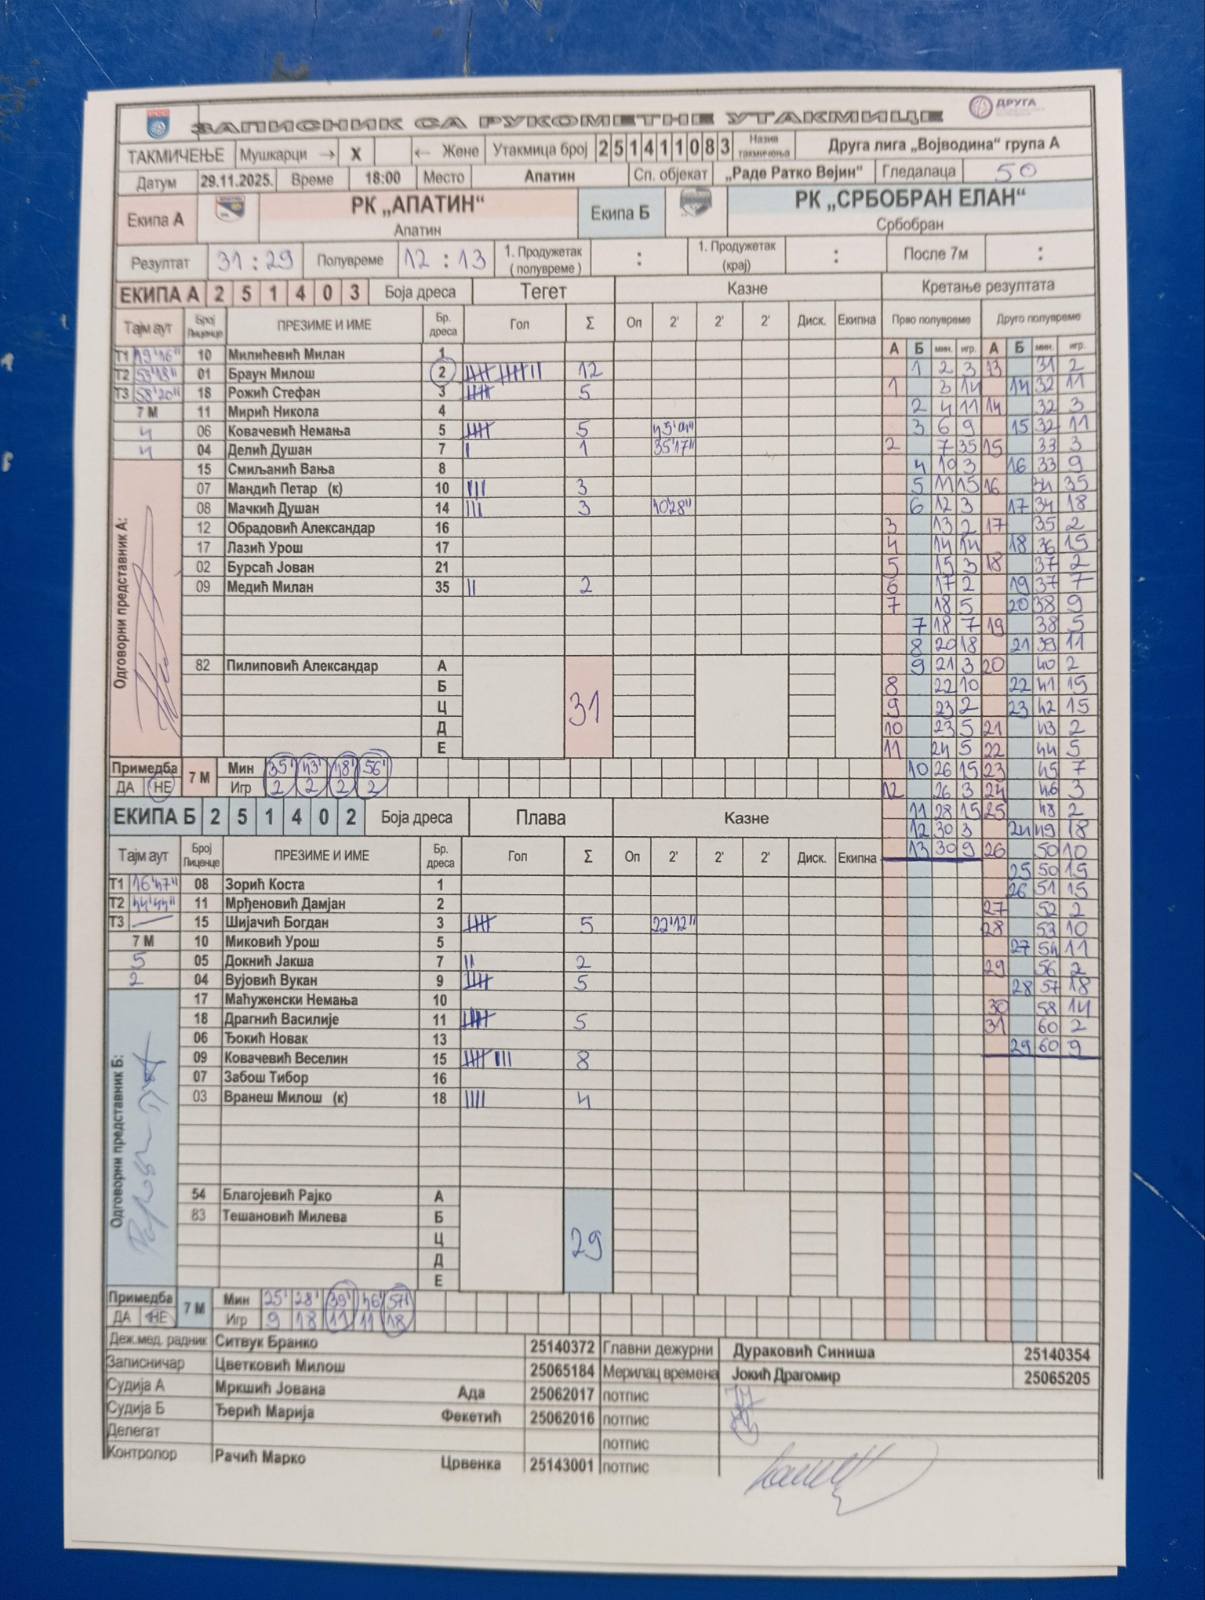 ДРУГА
ЗАПИСНИК СА РУКОМЕТНЕ УТАКМИЦЕ
ТАКМИЧЕЊЕ Мушкарци → X ← Жене Утакмица број 2 5 1 4 1 1 0 8 3 Назив такмичења Друга лига „Војводина“ група А
Датум 29.11.2025. Време 18:00 Место Апатин Сп. објекат „Раде Ратко Вејин“ Гледалаца 50
Екипа А РК „АПАТИН“ Апатин Екипа Б РК „СРБОБРАН ЕЛАН“ Србобран
Резултат 31 : 29 Полувреме 12 : 13 1. Продужетак (полувреме) : 1. Продужетак (крај) : После 7м :
ЕКИПА А 2 5 1 4 0 3 Боја дреса Тегет Казне Кретање резултата
Тајм аут Број Лиценце ПРЕЗИМЕ И ИМЕ Бр. дреса Гол Σ Оп 2' 2' 2' Диск. Екипна Прво полувреме Друго полувреме
А Б мин. игр. А Б мин. игр.
T1 19'16'' 10 Милићевић Милан 1
T2 53'18'' 01 Браун Милош 2 12
T3 58'20'' 18 Рожић Стефан 3 5
7 М 11 Мирић Никола 4
4 06 Ковачевић Немања 5 5 45'01''
4 04 Делић Душан 7 1 35'17''
15 Смиљанић Вања 8
07 Мандић Петар (к) 10 3
08 Мачкић Душан 14 3 10'28''
12 Обрадовић Александар 16
17 Лазић Урош 17
02 Бурсаћ Јован 21
09 Медић Милан 35 2
Одговорни представник А:
82 Пилиповић Александар А
Б
Ц 31
Д
Е
1 2 3 13 31 2
1 3 14 14 32 11
2 4 11 14 32 3
3 6 9 15 32 11
2 7 35 15 33 3
4 10 3 16 33 9
5 11 15 16 34 35
6 12 3 17 34 18
3 13 2 17 35 2
4 14 14 18 36 15
5 15 3 18 37 2
6 17 2 19 37 7
7 18 5 20 38 9
7 18 7 19 38 5
8 20 18 21 39 11
9 21 3 20 40 2
8 22 10 22 41 15
9 23 2 23 42 15
10 23 5 21 43 2
11 24 5 22 44 5
10 26 15 23 45 7
12 26 3 24 46 3
11 28 15 25 48 2
12 30 3 24 49 18
13 30 9 26 50 10
25 50 15
26 51 15
27 52 2
28 53 10
27 54 11
29 56 2
28 57 18
30 58 14
31 60 2
29 60 9
Примедба ДА НЕ 7 М Мин 35' 43' 48' 56'
Игр 2 2 2 2
ЕКИПА Б 2 5 1 4 0 2 Боја дреса Плава Казне
Тајм аут Број Лиценце ПРЕЗИМЕ И ИМЕ Бр. дреса Гол Σ Оп 2' 2' 2' Диск. Екипна
T1 16'47'' 08 Зорић Коста 1
T2 44'44'' 11 Мрђеновић Дамјан 2
T3 15 Шијачић Богдан 3 5 22'12''
7 М 10 Миковић Урош 5
5 05 Докнић Јакша 7 2
2 04 Вујовић Вукан 9 5
17 Маћуженски Немања 10
18 Драгнић Василије 11 5
06 Ђокић Новак 13
09 Ковачевић Веселин 15 8
07 Забош Тибор 16
03 Вранеш Милош (к) 18 4
Одговорни представник Б:
54 Благојевић Рајко А
83 Тешановић Милева Б
Ц 29
Д
Е
Примедба ДА НЕ 7 М Мин 25' 28' 39' 46' 57'
Игр 9 18 11 11 18
Деж.мед. радник Ситвук Бранко 25140372 Главни дежурни Дураковић Синиша 25140354
Записничар Цветковић Милош 25065184 Мерилац времена Јокић Драгомир 25065205
Судија А Мркшић Јована Ада 25062017 потпис
Судија Б Ђерић Марија Фекетић 25062016 потпис
Делегат потпис
Контролор Рачић Марко Црвенка 25143001 потпис